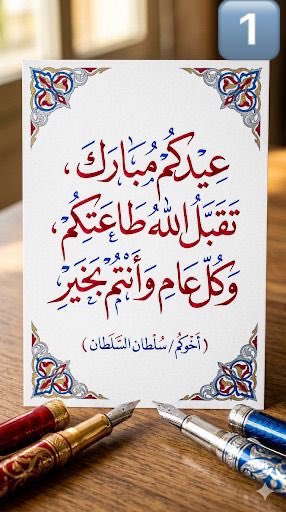 1
عِيْدكُمْ مُبَارَكَ،
تَقَبَّلُ اللهُ طَاعَتِكُمْ،
وَكُلّ عَامِ وَأَنْتُمْ بَخَيْرِ
(أَخوكُم/ سُلْطَان السَّلْطَان)